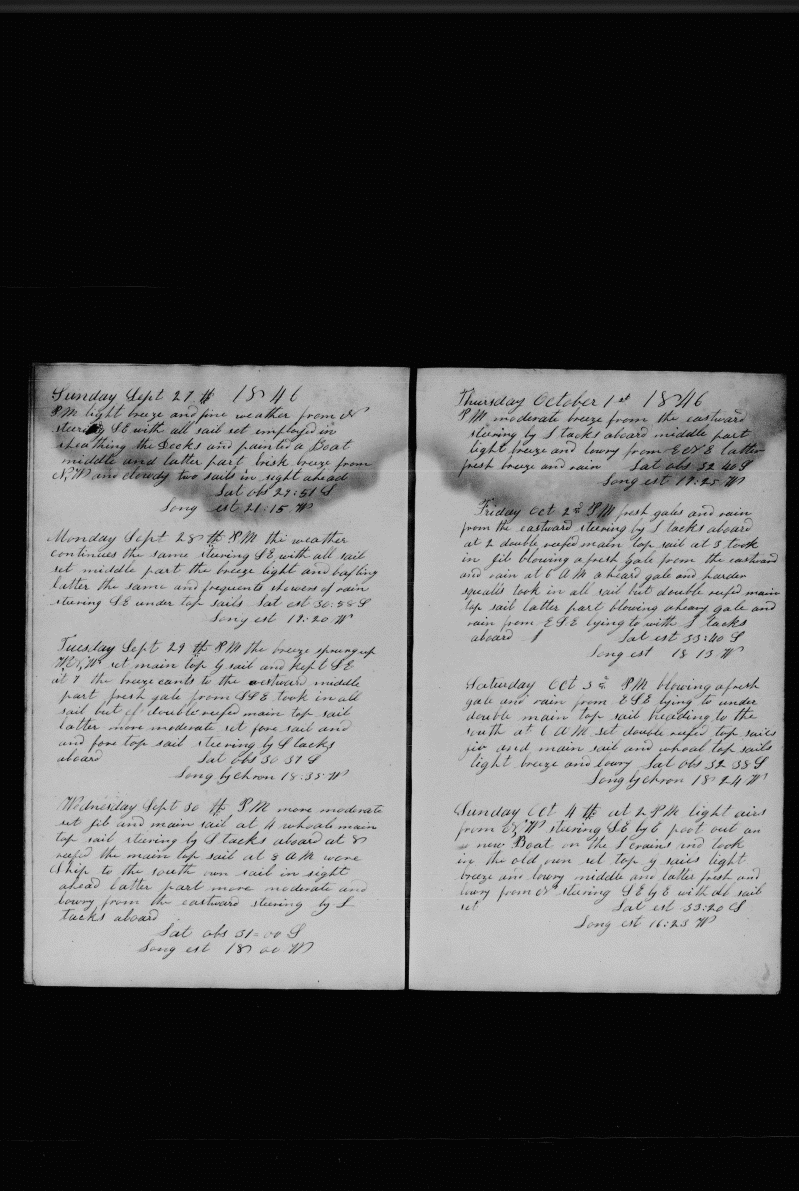 Sunday Sept 27 th 1846
PM light breeze and fine weather from N
steering SE with all sail set employed in
sheathing the Decks and painted a Boat
middle and latter part brisk breeze from
N,W and clowdy two sails in sight ahead
Lat obs 29:51 S
Long est 21:15 W
Monday Sept 28 th PM the weather
continues the same steering SE with all sail
set middle part the breeze light and bafling
latter the same and frequents showers of rain
steuring SE under top sails Lat est 30:28 S
Long est 19:20 W
Tuesday Sept 29 th PM the breeze sprung up
set main top g sail and kept SE
at 7 the breeze cants to the eastward middle
part fresh gale from SSE took in all
sail but cl double reefed main top sail
latter more moderate set fore sail and
and fore top sail steering by S tacks
aboard Lat obs 30 37 S
Long by chron 18:35 W
Wednesday Sept 30 th P.M more moderate
set jib and main sail at 4 whoale main
top sail steering by S tacks aboard at 8
reefed the main top sail at 3 AM wore
Ship to the south own sail in sight
ahead latter part more moderate and
lowry from the eastward steering by S
tacks aboard
Lat obs 31=00 S
Long est 18 00 W
Thursday October 1 st 1846
PM moderate breeze from the eastward
steering by S tacks aboard middle part
light breeze and lowry from E latter
fresh breeze and rain Lat obs 32 40 S
Long est 17:25 W
Friday Oct 2nd PM fresh gales and rain
from the eastward steering by S tacks aboard
at 2 double reefed main top sail at 3 took
in jib blowing a fresh gale from the eastward
and rain at 6 AM a heard gale and harder
squalls took in all sail but double reefed main
top sail latter part blowing a heavy gale and
rain from ESE lying to with S tacks
aboard Lat est 33:40 S
Long est 18 13 W
Saturday Oct 3d PM blowing a fresh
gale and rain from ESE lying to under
double main top sail heading to the
south at 6 AM set double reefed top sailes
jiv and main sail and whoal top sails
light breeze and lowry Lat obs 32 38 S
Long by chron 18 24 W
Sunday Oct 4 th at 2 PM light airs
from N,W steering SE by E poot out an
new Boat on the Crains and took
in the old own set top g sails light
breeze and lowry middle and latter fresh and
lowry from N steering SE by E with all sail
set Lat est 33:20 S
Long est 16:23 W